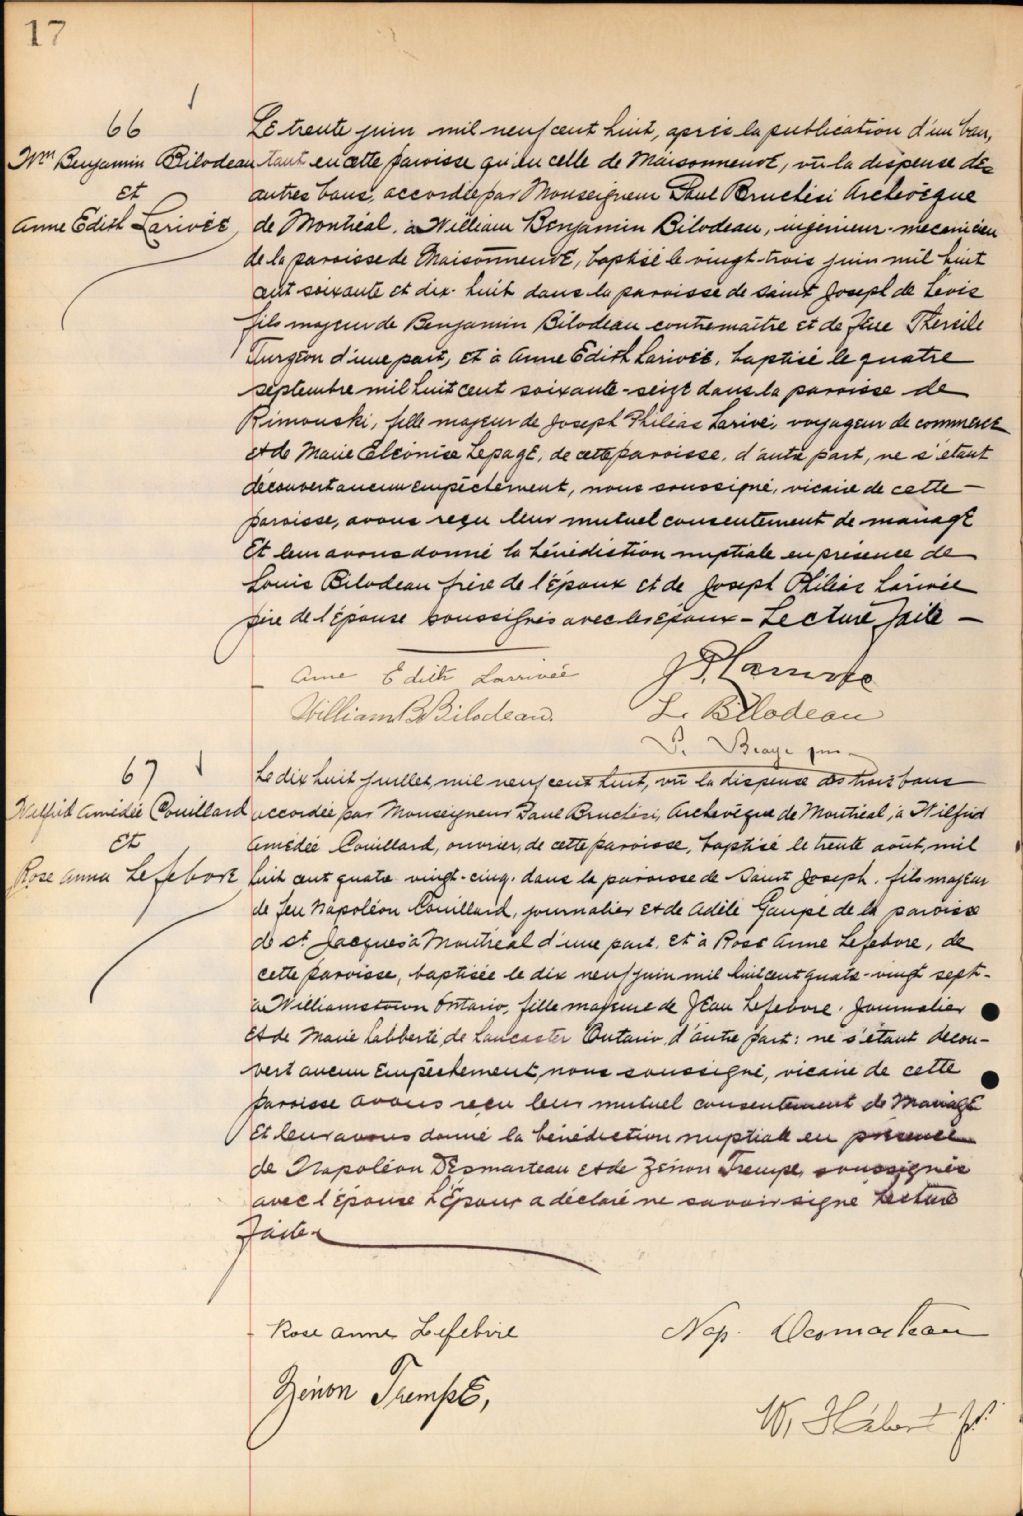 17
66
Wm Benjamin Bilodeau
et
Anne Edith Larivée
Le trente juin mil neuf cent huit, après la publication d'un ban,
tant en cette paroisse qu'en celle de Maisonneuve, vu la dispense des
autres bans, accordée par Monseigneur Paul Bruchési Archevêque
de Montréal, à William Benjamin Bilodeau, ingénieur-mecanicien
de la paroisse de Maisonneuve, baptisé le vingt-trois juin mil huit
cent soixante et dix-huit dans la paroisse de Saint Joseph de Levis
fils majeur de Benjamin Bilodeau contremaître et de feue Thersile
Turgeon d'une part, et à Anne Edith Larivée, baptisé le quatre
septembre mil huit cent soixante-seize dans la paroisse de
Rimouski, fille majeur de Joseph Philéas Larivé, voyageur de commerce
et de Marie Eléonise Lepage, de cette paroisse, d'autre part, ne s'étant
découvert aucun empêchement, nous soussigné, vicaire de cette
paroisse, avons reçu leur mutuel consentement de mariage
Et leur avons donné la bénédiction nuptiale en présence de
Louis Bilodeau frère de l'Époux et de Joseph Philéas Larivée
père de l'épouse soussignés avec les époux - Lecture faite -
Anne Edith Larrivée
J. P. Larrivée
William B. Bilodeau.
L. Bilodeau
67
Wilfrid Amédée Couillard
et
Rose Anna Lefebvre
Le dix huit juillet, mil neuf cent huit, vu la dispense des trois bans
accordée par Monseigneur Paul Bruchési, Archevêque de Montréal, à Wilfrid
Amédée Couillard, ouvrier, de cette paroisse, baptisé le trente août, mil
huit cent quatre vingt-cinq, dans la paroisse de Saint Joseph, fils majeur
de feu Napoléon Couillard, journalier et de Adèle Gaupé de la paroisse
de St. Jacques à Montréal d'une part, et à Rose Anne Lefebvre, de
cette paroisse, baptisée le dix neuf juin mil huit cent quatre-vingt sept-
à Williamstown Ontario, fille majeure de Jean Lefebvre, Journalier
et de Marie Labberté de Lancaster Ontario, d'autre part: ne s'étant decou-
vert aucun empêchement, nous soussigné, vicaire de cette
paroisse avons reçu leur mutuel consentement de Mariage
Et leur avons donné la bénédiction nuptiale en présence
de Napoléon Desmarteau et de Zénon Trempe, soussignés
avec l'épouse L'Epoux a déclaré ne savoir signé Lecture
faite
Rose Anne Lefebvre
Nap. Desmarteau
Zénon Trempe,
W, Hébert ptr